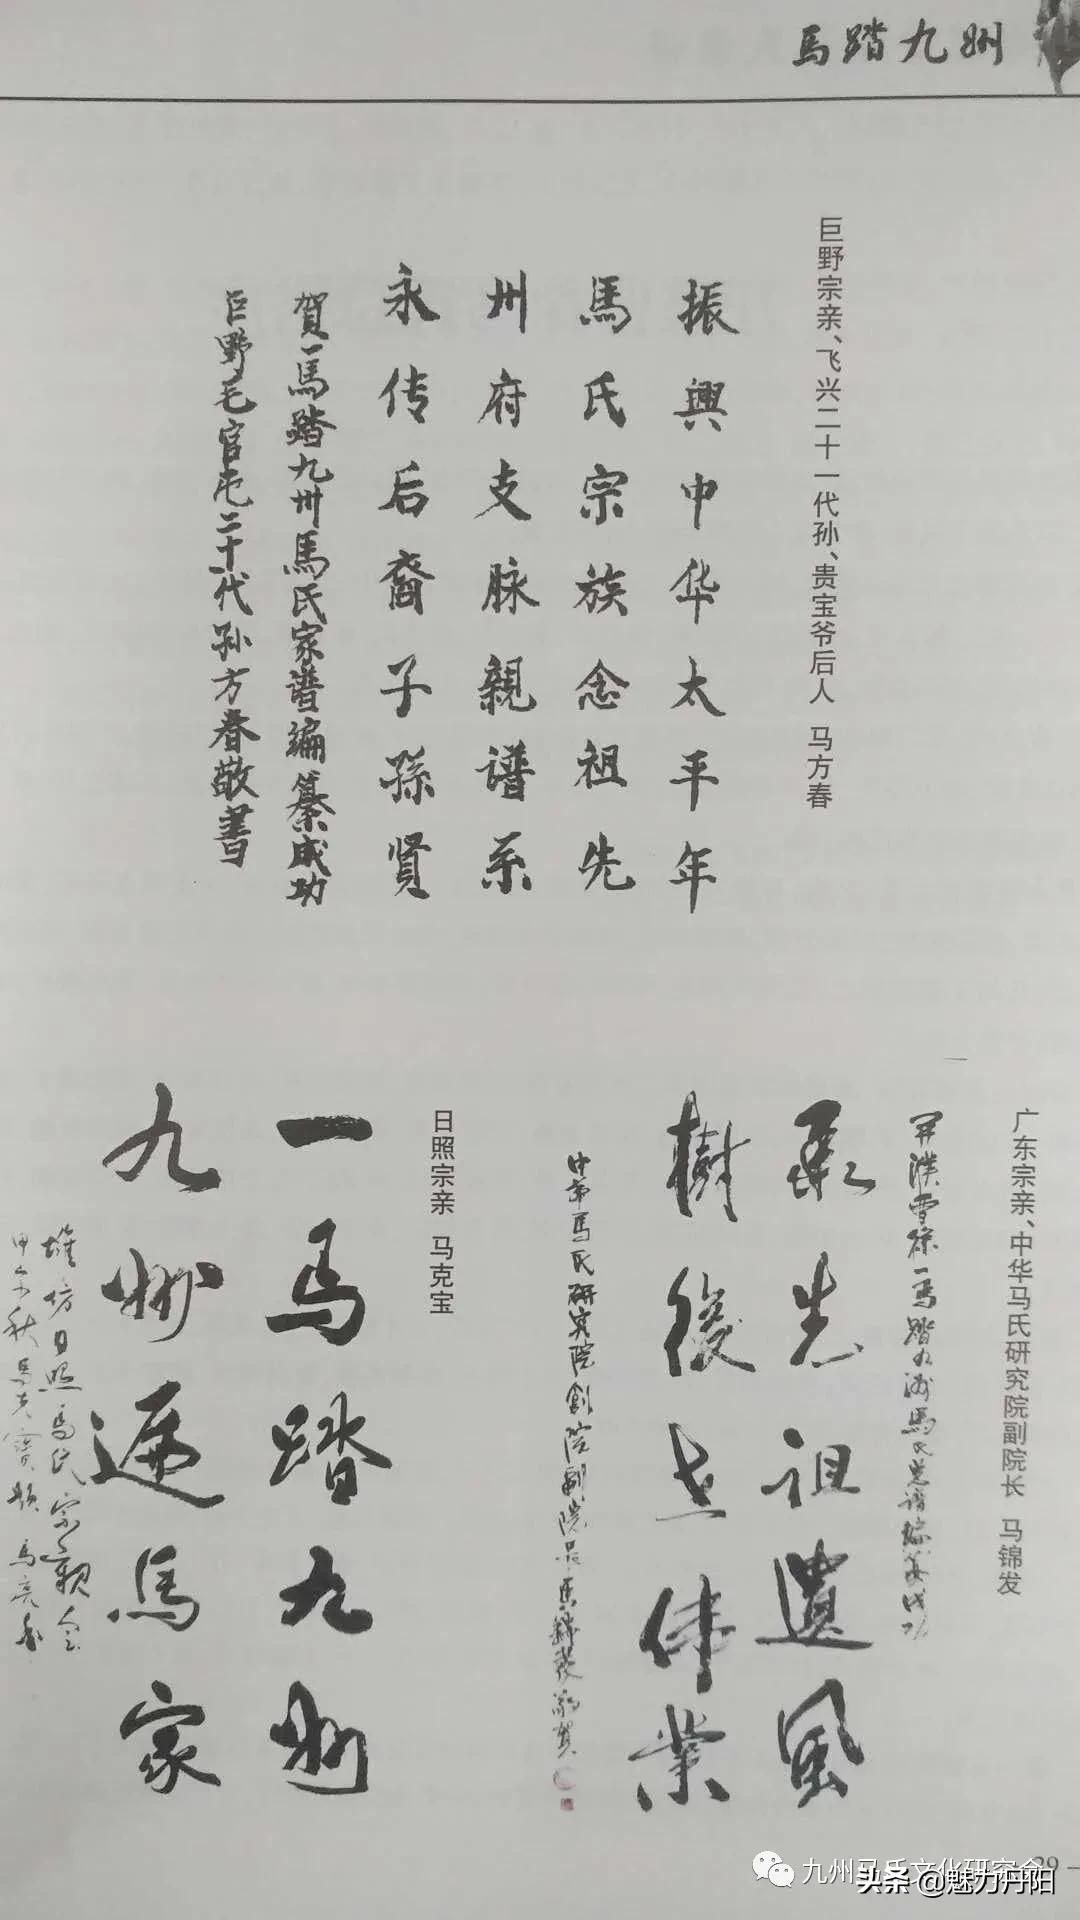 馬踏九州
巨野宗亲、飞兴二十一代孙、贵宝爷后人 马方春
振興中华太平年
馬氏宗族念祖先
州府支脉親谱系
永传后裔子孫贤
賀一馬踏九州馬氏家谱编纂成功
巨野毛官屯二十代孙方春敬書
广东宗亲、中华马氏研究院副院长 马锦发
一馬踏九州馬氏总谱编纂成功
承先祖遗風
樹後世伟業
中华馬氏研究院創院副院長馬錦發敬賀
日照宗亲 马克宝
一馬踏九州
九州遍馬家
潍坊日照馬氏宗親会
甲午秋馬克寶題 馬亮書
29
九州马氏文化研究会
头条 @魅力丹阳